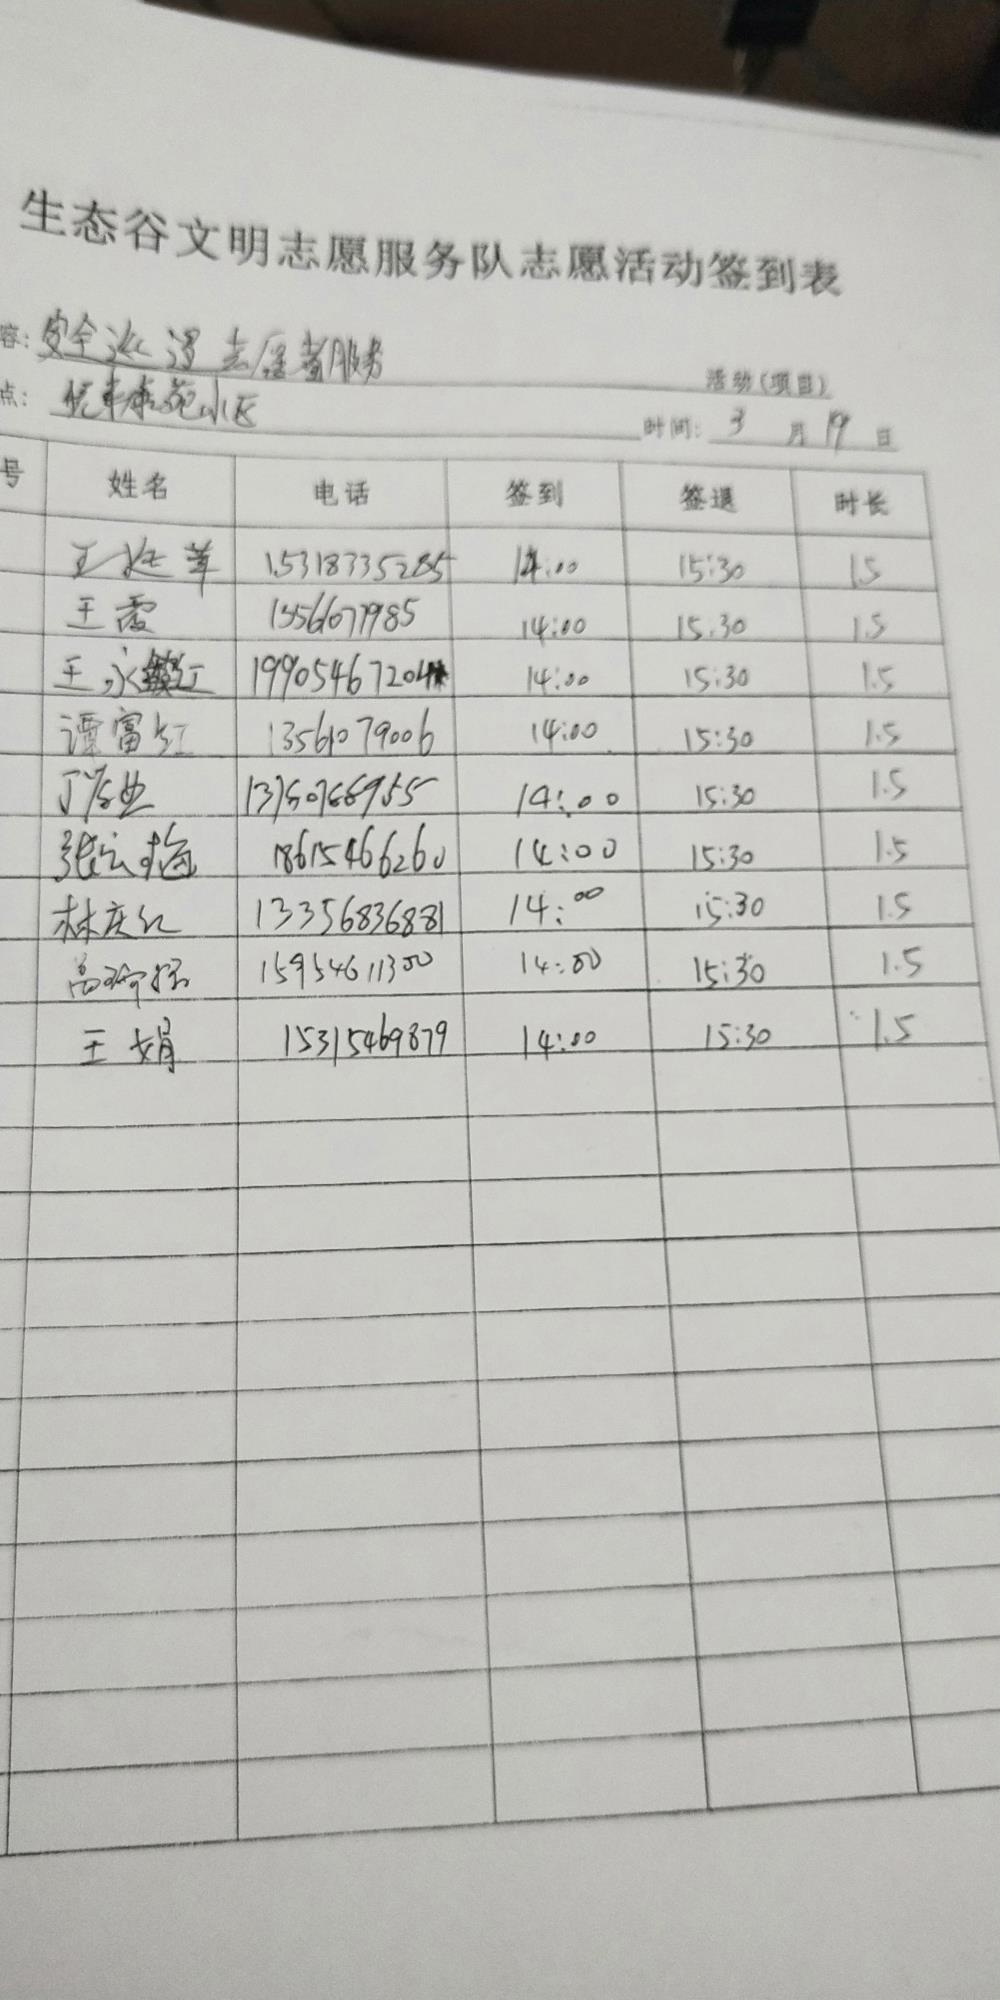 生态谷文明志愿服务队志愿活动签到表
容: 安全巡逻志愿者服务
活动(项目)
点: 小区
时间: 3 月 19 日
号 姓名 电话 签到 签退 时长
王 15318335285 14:00 15:30 1.5
王霞 14:00 15:30 1.5
王永红 14:00 15:30 1.5
谭富红 13561079006 14:00 15:30 1.5
14:00 15:30 1.5
张 18615466260 14:00 15:30 1.5
林庆红 13356836881 14:00 15:30 1.5
15954611300 14:00 15:30 1.5
王娟 15315469879 14:00 15:30 1.5